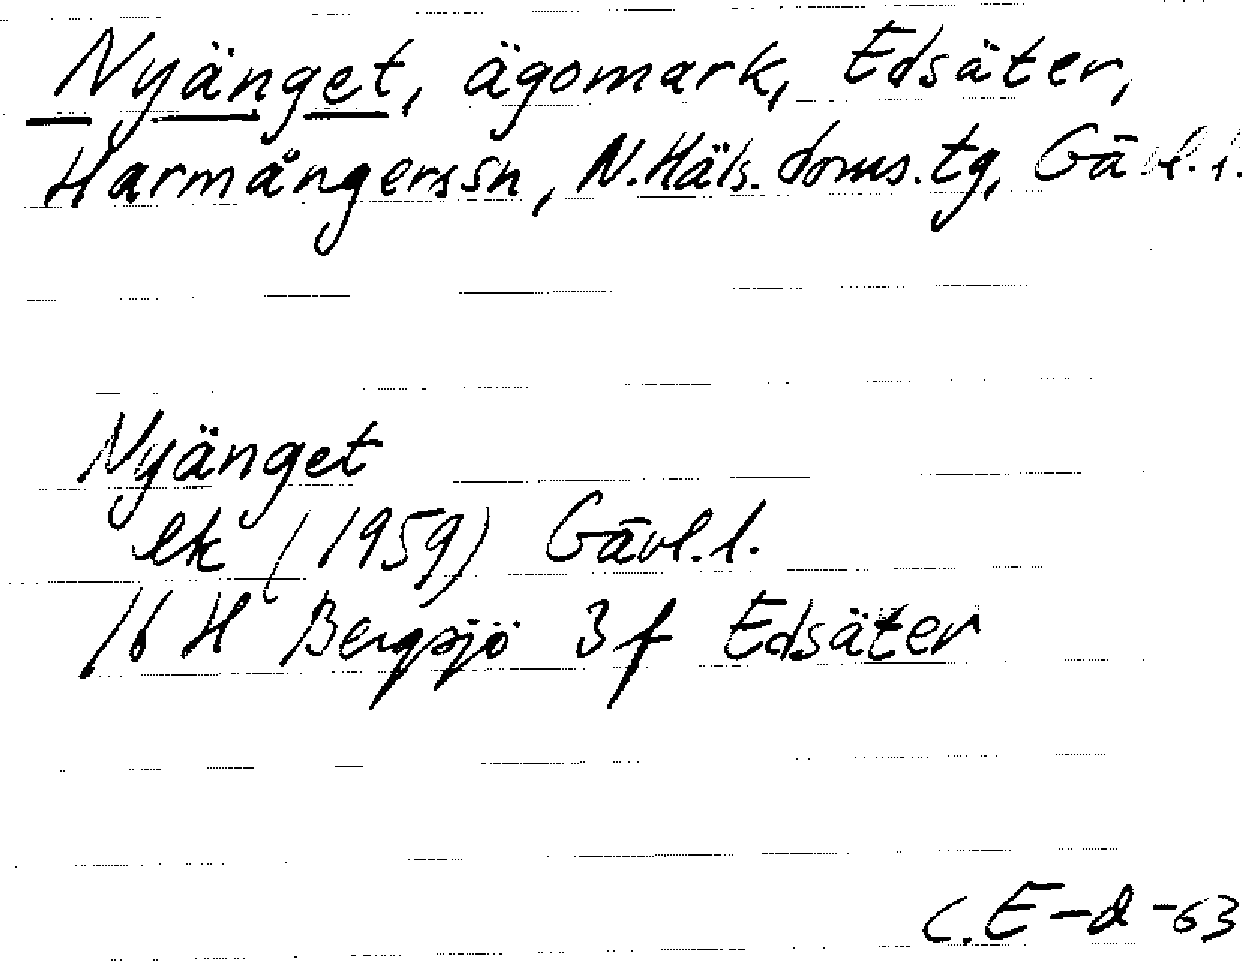 Nyänget, ägomark, Edsäter,
Harmångerssn, N. Häls. doms. tg, Gävl. l.
Nyänget
ek (1959) Gävl. l.
16 H Bergsjö 3 f Edsäter
C. E-d -63